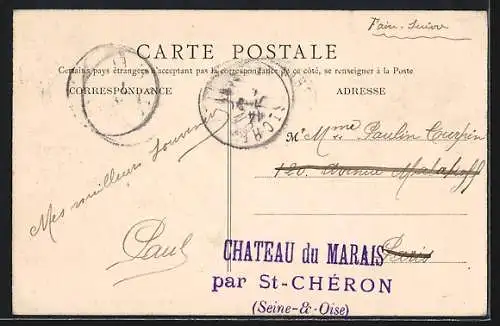 Faire-Suivre
CARTE POSTALE
Certains pays étrangers n'acceptant pas la correspondance de ce côté, se renseigner à la Poste
CORRESPONDANCE
ADRESSE
Mr Mme Paulin Turpin
120 Avenue Malakoff
Paris
Mes meilleurs souvenirs
Paul
CHATEAU du MARAIS
par St-CHÉRON
(Seine-&-Oise)